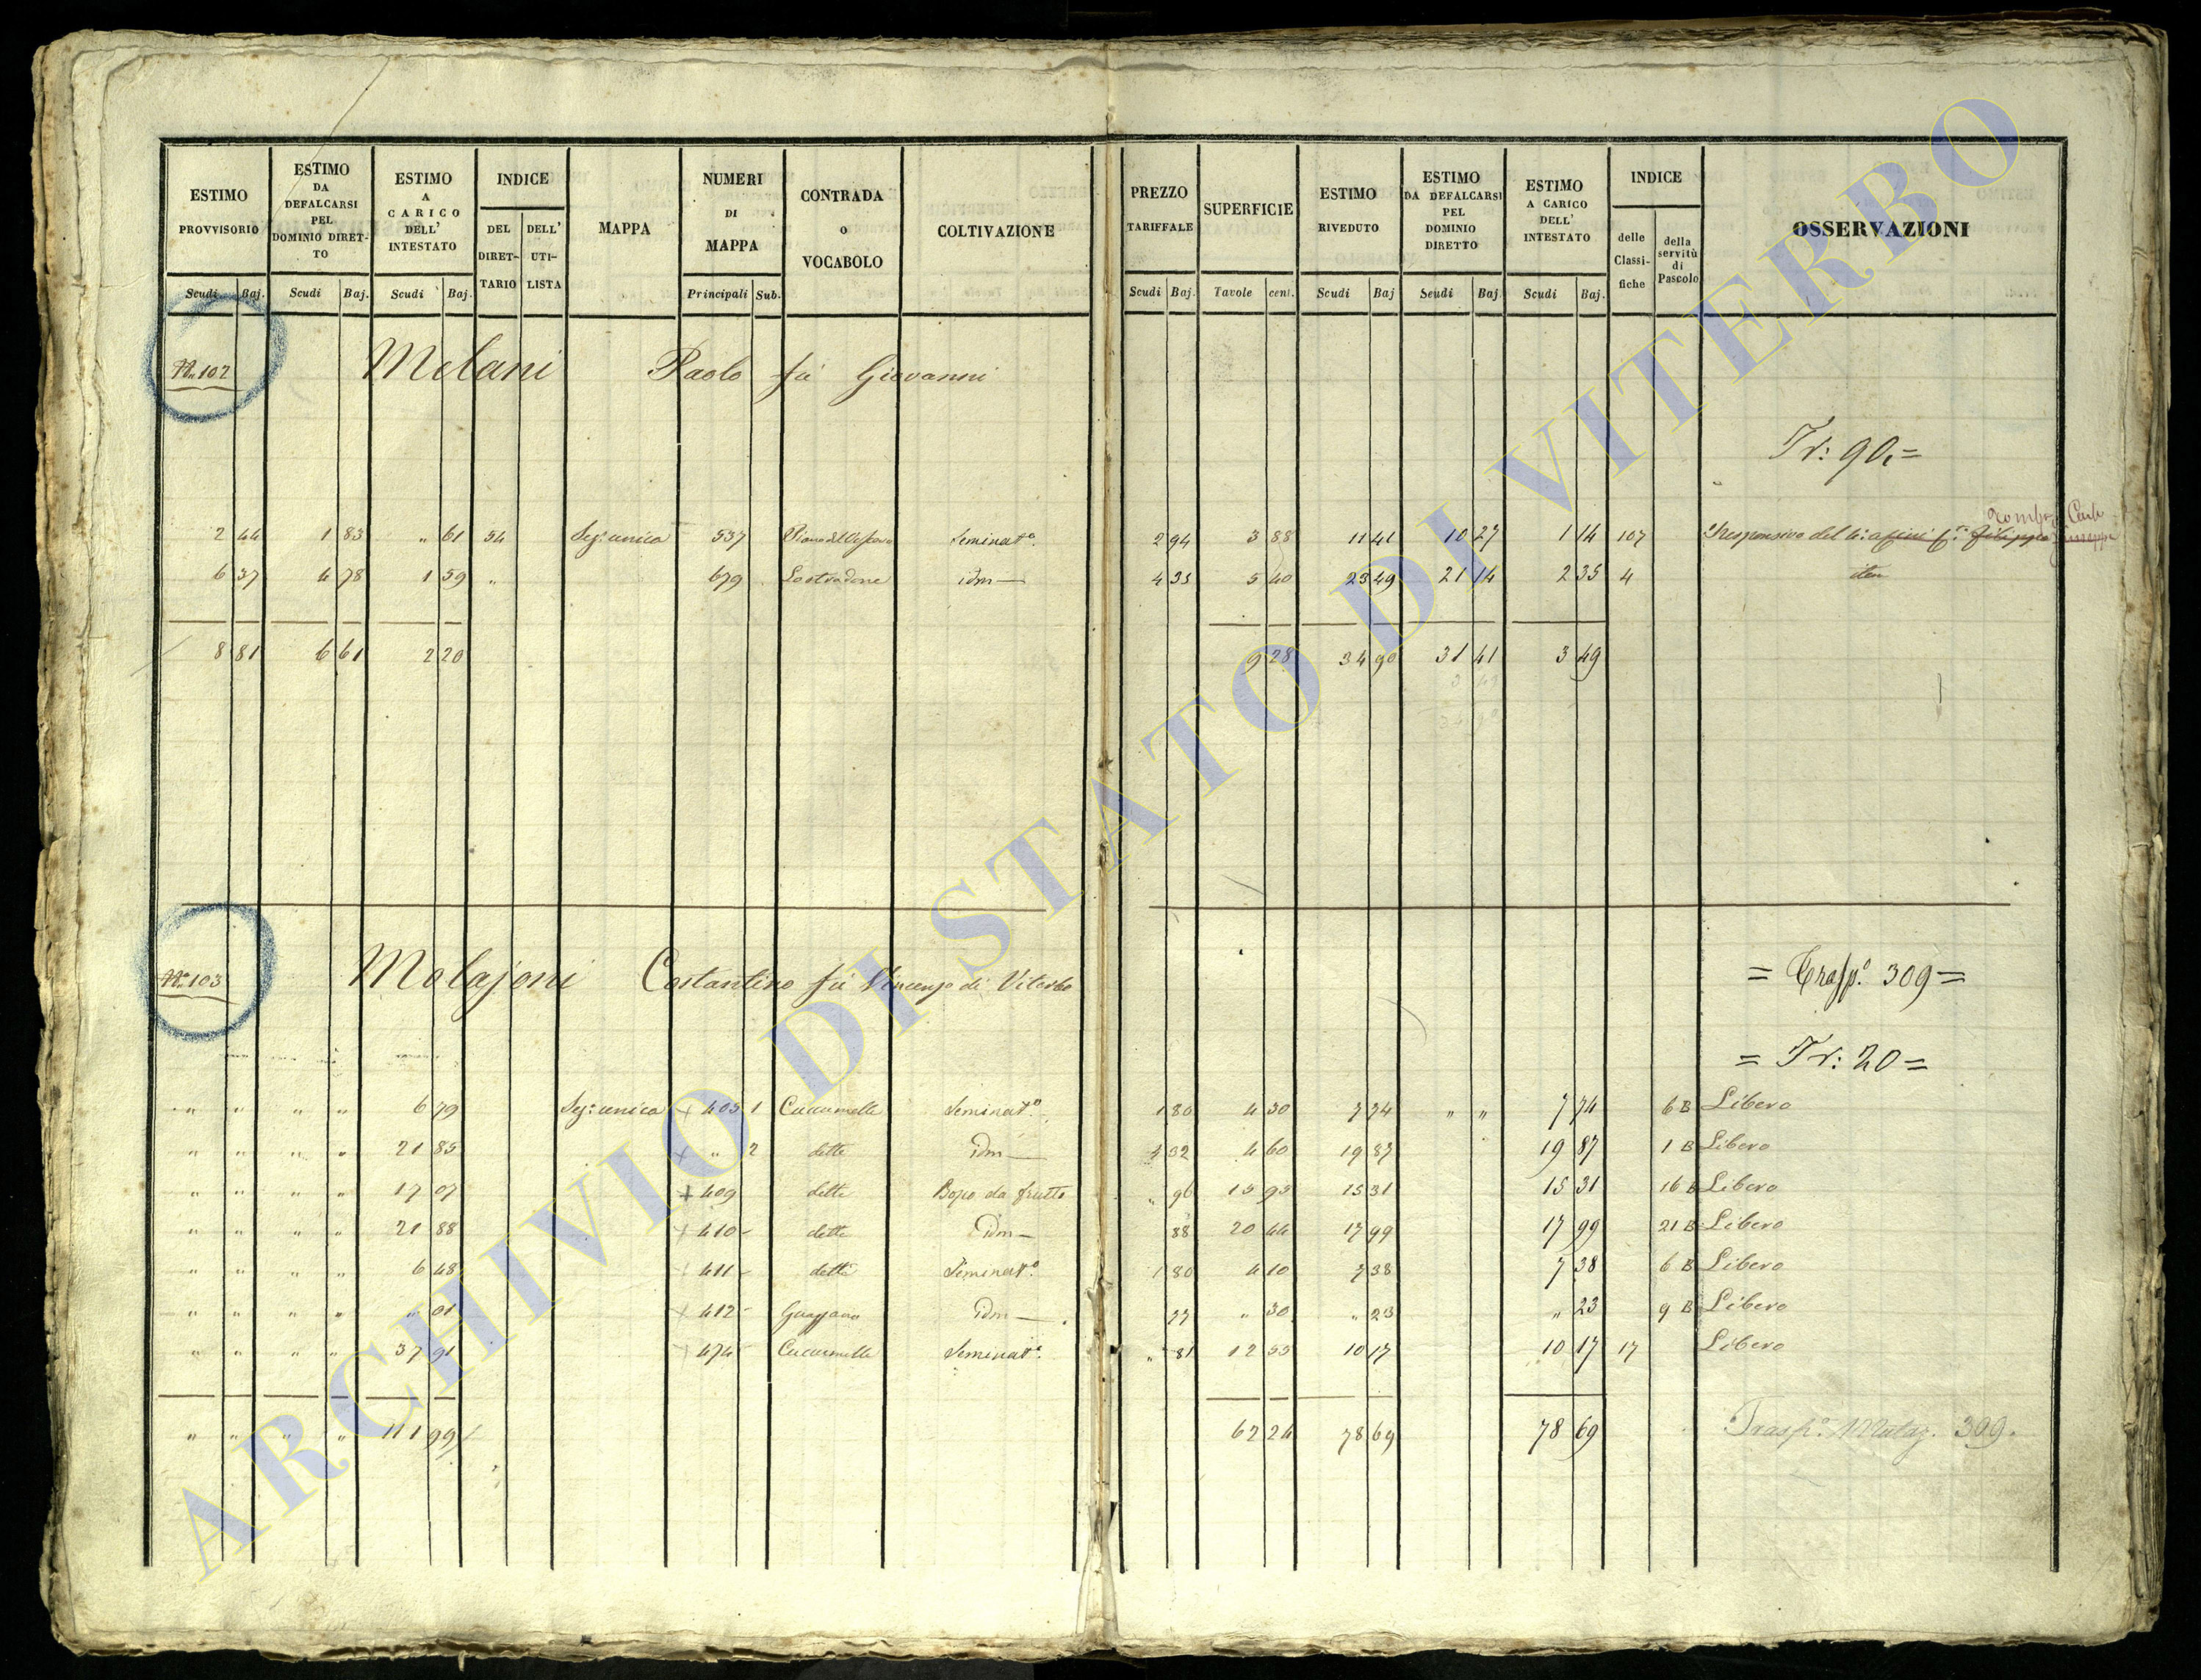 ESTIMO PROVVISORIO
ESTIMO DA DEFALCARSI PEL DOMINIO DIRETTO
ESTIMO A CARICO DELL' INTESTATO
INDICE
DEL DIRETTARIO
DELL' UTILISTA
MAPPA
NUMERI DI MAPPA
CONTRADA o VOCABOLO
COLTIVAZIONE
PREZZO TARIFFALE
SUPERFICIE
ESTIMO RIVEDUTO
ESTIMO DA DEFALCARSI PEL DOMINIO DIRETTO
ESTIMO A CARICO DELL' INTESTATO
INDICE
delle Classifiche
della servitù di Pascolo
OSSERVAZIONI
Scudi Baj. Scudi Baj. Scudi Baj. Principali Sub. Scudi Baj. Tavole cent. Scudi Baj Scudi Baj. Scudi Baj.
N.° 102 Melani Paolo fù Giovanni
Tr: 90.=
2 44 1 83 " 61 54 Sez: unica 537 Seminat.° 2 94 3 88 11 41 10 27 1 14 107 Responsivo del
6 37 4 78 1 59 " 679 idm 4 35 5 40 23 49 21 14 2 35 4
8 81 6 61 2 20 9 28 34 90 31 41 3 49
3 49
34 90
N.° 103 Molajoni Costantino fù Vincenzo di Viterbo
= Trasp.° 309 =
= Tr: 20 =
" " " " 6 79 Sez: unica 403 1 Cucumelle Seminat.° 1 80 4 30 7 74 " " 7 74 6 B Libero
" " " " 21 85 " 2 dette idm 4 32 4 60 19 87 19 87 1 B Libero
" " " " 17 07 409 dette Bozzo da frutto " 96 15 95 15 31 15 31 16 B Libero
" " " " 21 88 410 dette idm 88 20 44 17 99 17 99 21 B Libero
" " " " 6 48 411 dette Seminat.° 1 80 4 10 7 38 7 38 6 B Libero
" " " " " 01 412 idm 77 " 30 " 23 " 23 9 B Libero
" " " " 37 91 474 Cucumelle Seminat.° " 81 12 55 10 17 10 17 17 Libero
" " " " 111 99 62 24 78 69 78 69 Trasp.° 309.
ARCHIVIO DI STATO DI VITERBO